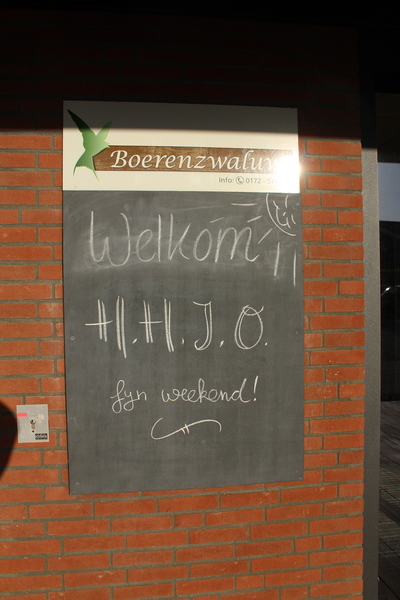 Boerenzwaluw
Info: 0172 - 5
Welkom
H.H.J.O.
fyn weekend!